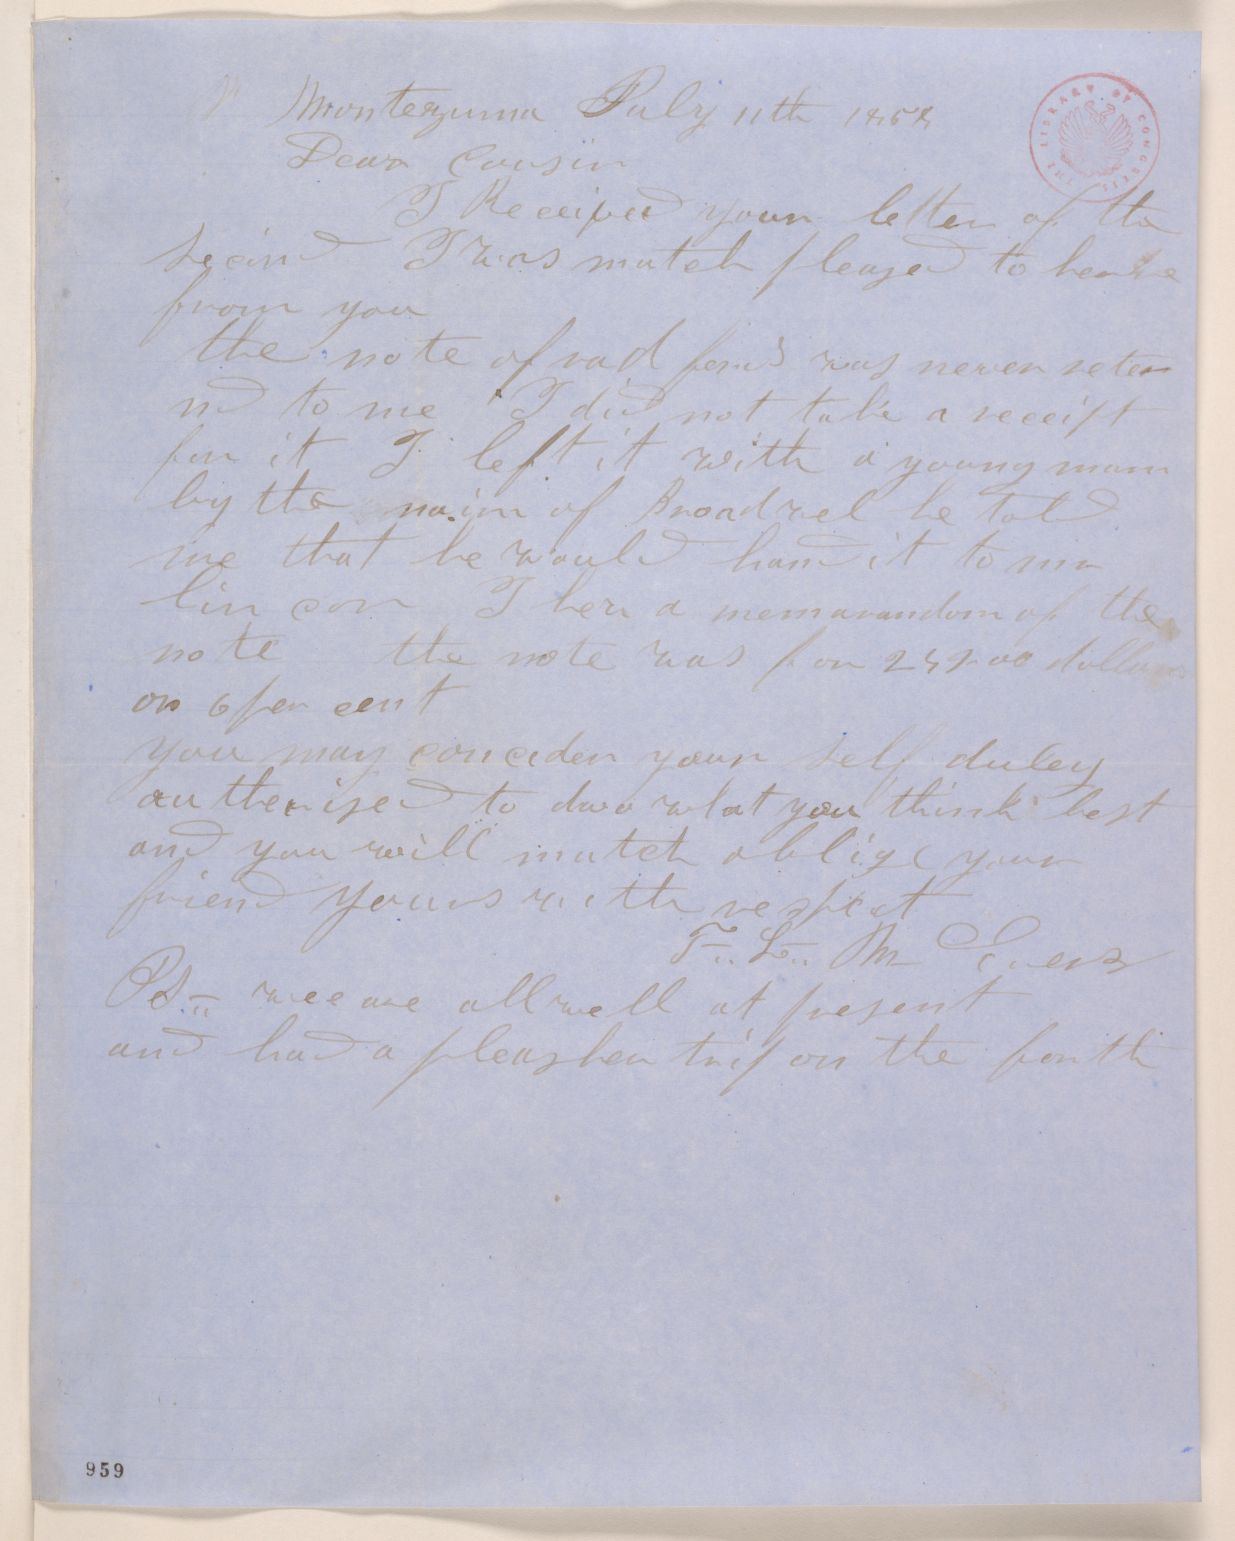 Montezuma July 11th 1858
Dear Cousin
I Received your letter of the
secind I was mutch pleased to heare
from you
the note of rad ford was never reter
nd to me I did not take a receipt
for it I left it with a young man
by the naim of Broadwel he told
me that he would hand it to mr
lin con I her a memarandom of the
note the note was for dollars
on 6 per cent
you may concider your self duley
autherised to doo what you think best
and you will mutch oblige your
friend yours with respect
T.. L..
PS.. wee are all well at present
and had a pleasher trip on the forth
THE LIBRARY OF CONGRESS
959